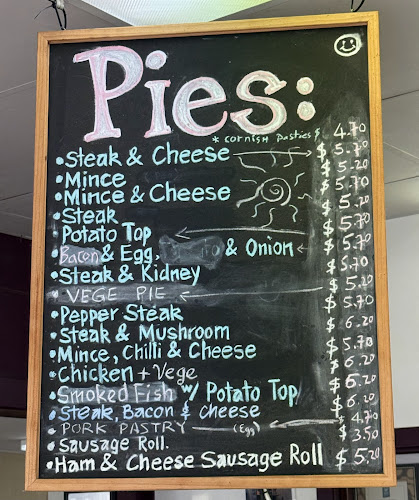 Pies:
* Cornish Pasties $ 4.70
• Steak & Cheese $ 5.70
• Mince 5.20
• Mince & Cheese $ 5.70
• Steak 5.20
Potato Top $ 5.70
• Bacon & Egg, & Onion 5.70
• Steak & Kidney $ 5.70
• VEGE PIE 5.20
• Pepper Steak $ 5.70
• Steak & Mushroom 6.20
• Mince, Chilli & Cheese $ 5.70
• Chicken + Vege 6.20
• Smoked Fish w/ Potato Top $ 6.20
• Steak, Bacon & Cheese 6.20
• PORK PASTRY (Egg) $ 4.70
• Sausage Roll. $ 3.50
• Ham & Cheese Sausage Roll $ 5.20